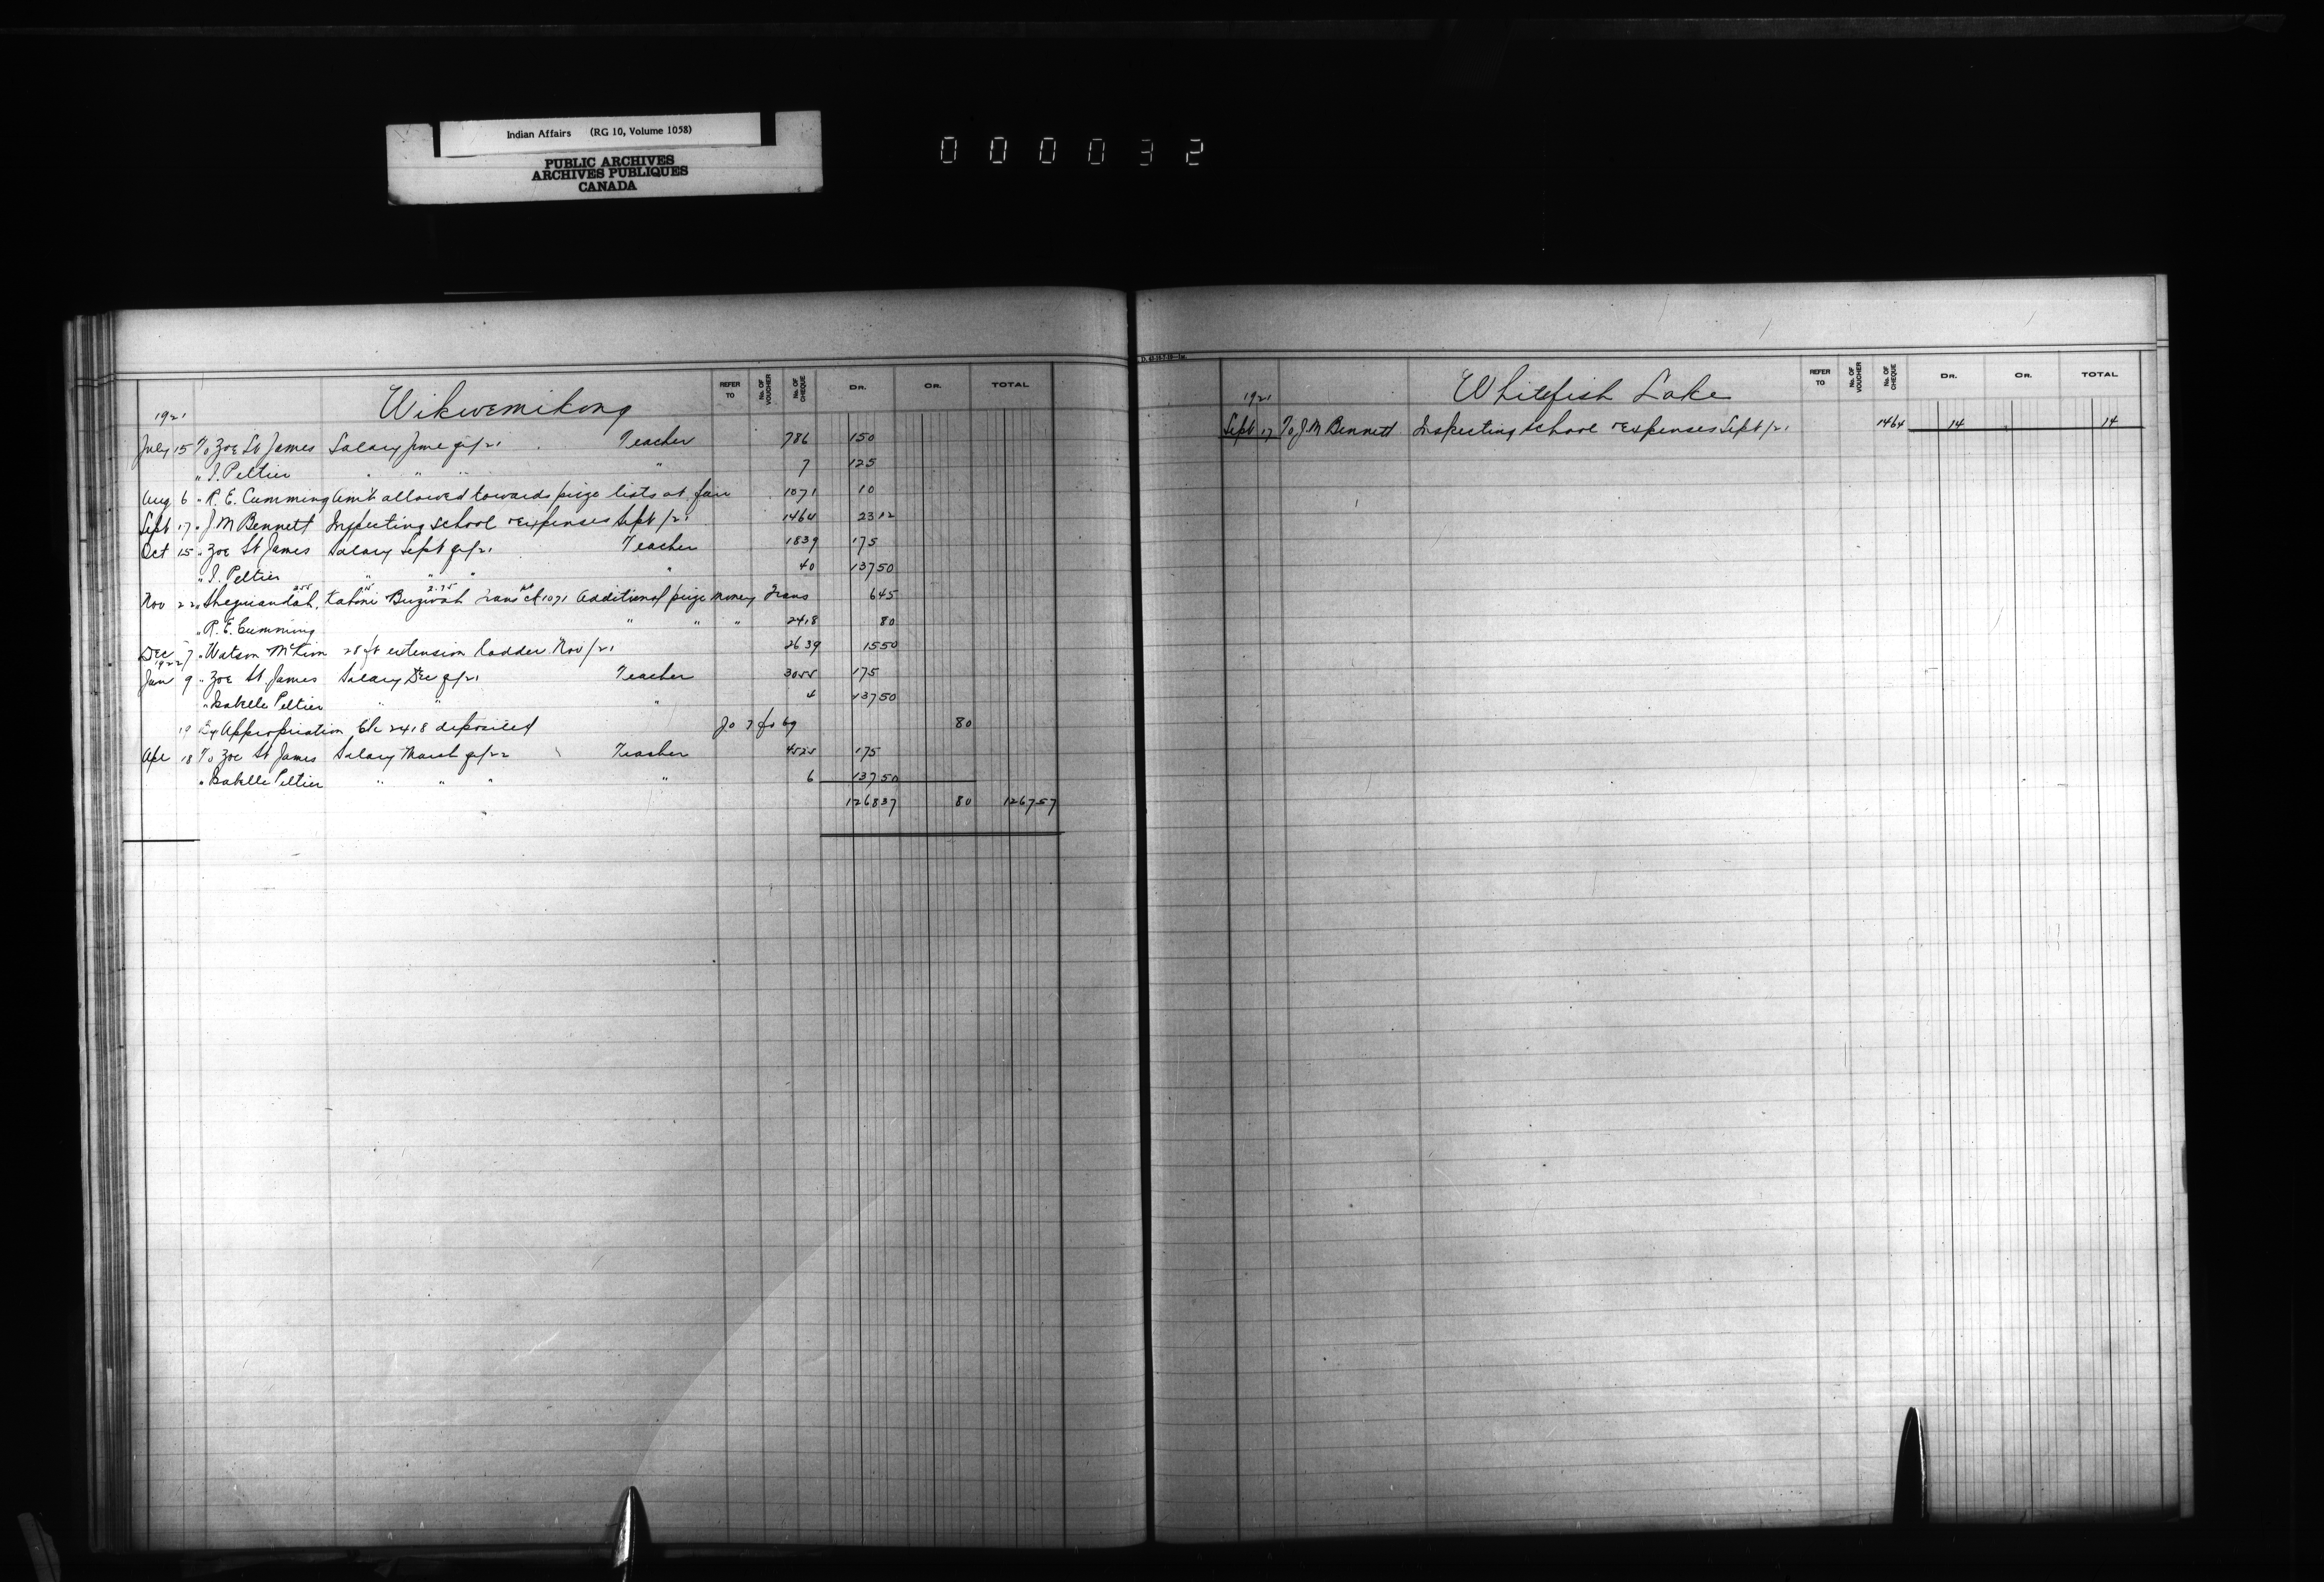 Indian Affairs (RG 10, Volume 1058)
PUBLIC ARCHIVES
ARCHIVES PUBLIQUES
CANADA
000032
Wikwemikong
REFER TO No. OF VOUCHER No. OF CHEQUE DR. CR. TOTAL
1921
July 15 To Zoe St James Salary June qr/21 Teacher 786 150
" I. Peltier " " " " 7 125
Aug 6 " R. E. Cumming Amt allowed towards prize lists at fair 1071 10
Sept 17 " J M Bennett Inspecting school & expenses Sept /21 1464 23 12
Oct 15 " Zoe St James Salary Sept qr/21 Teacher 1839 175
" I. Peltier " " " " 40 137 50
Nov 22 " Sheguiandah, Buzwah Trans 1071 Additional prize money Trans 6 45
" R. E. Cumming " " " 2418 80
Dec 7 " Watson McKim 28 ft extension ladder Nov /21 2639 15 50
1922
Jan 9 " Zoe St James Salary Dec qr/21 Teacher 3055 175
" Isabelle Peltier " " " 4 137 50
19 By Appropriation Ck 2418 deposited Jo 7 fo 69 80
Apl 18 To Zoe St James Salary March qr/22 Teacher 4525 175
" Isabelle Peltier " " " " 6 137 50
1268 37 80 1267 57
Whitefish Lake
REFER TO No. OF VOUCHER No. OF CHEQUE DR. CR. TOTAL
1921
Sept 17 To J M Bennett Inspecting school & expenses Sept /21 1464 14 14